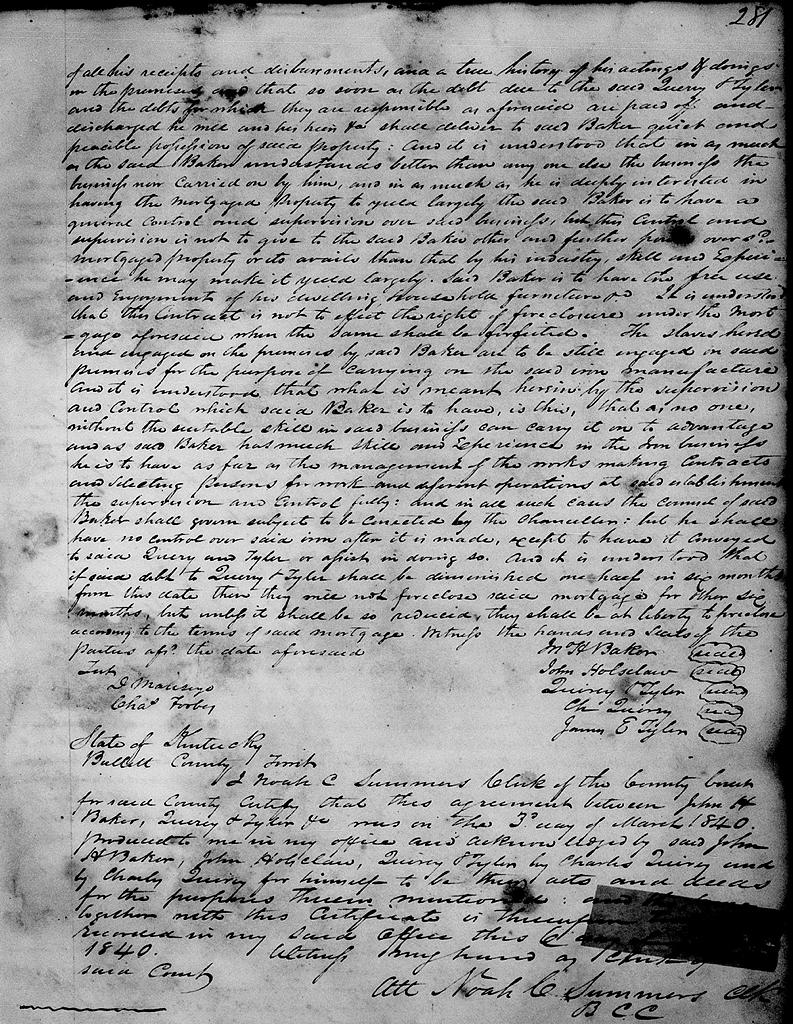 281
of all his receipts and disbursments, and a true history of his actings & doings
in the premises and that so soon as the debt due to the said Quirey & Tyler
and the debts for which they are responsible as aforesaid are paid of and
discharged he will and his heirs &c shall deliver to said Baker quiet and
peacible possession of said property: And it is understood that in as much
as the said Baker understands better than any one else the business the
business now carried on by him, and in as much as he is deeply interested in
having the mortgaged property to yeld largely the said Baker is to have a
general control and supervision over said business, but this control and
supervision is not to give to the said Baker other and further power over sd
mortgaged property or its avails than that by his industry, skill and Experi-
-ence he may make it yeld largely. Said Baker is to have the free use
and Enjoyment of his dwelling Household furniture &c It is understood
that this Contract is not to effect the right of foreclosure under the Mort
-gage aforesaid when the same shall be forfeited. The slaves hired
and engaged on the premises by said Baker are to be still engaged on said
premises for the purpose of carrying on the said iron manufacture
And it is understood that what is meant herein by the supervision
and Control which said Baker is to have, is this, that as no one,
without the suitable skill in said business can carry it on to advantage
and as said Baker has much skill and Experience in the Iron business
he is to have as far as the management of the works making Contracts
and selecting persons for work and different operations at said establishment
the supervision and Control fully: and in all such cases the council of said
Baker shall govern subject to be Corrected by the Chancellor: but he shall
have no control over said iron after it is made, except to have it conveyed
to said Quirey and Tyler or assist in doing so. And it is understood that
if said debt to Quirey & Tyler shall be diminished one half in six months
from this date then they will not foreclose said mortgage for other six
months, but unless it shall be so reduced, they shall be at liberty to foreclose
according to the terms of said mortgage. Witness the hands and seals of the
parties afsd. the date aforesaid
Jno H Baker (seal)
Test John Holsclaw (seal)
Quirey & Tyler (seal)
Chas Ch Quirey (seal)
James E Tyler (seal)
State of Kentucky
Bullitt County Sct
I Noah C Summers Clerk of the County Court
for said County Certify that this agreement between John H
Baker, Quirey & Tyler &c was on the 3d day of March 1840
produced to me in my office and acknowledged by said John
H Baker, John Holsclaw, Quirey & Tyler by Charles Quirey and
by Charles Quirey for himself to be their acts and deeds
for the purposes therein mentioned: and the
together with this Certificate is thereupon
recorded in my said Office this 6
1840. Witness my hand as Clerk of
said Court
Att Noah C Summers Clk
B C C